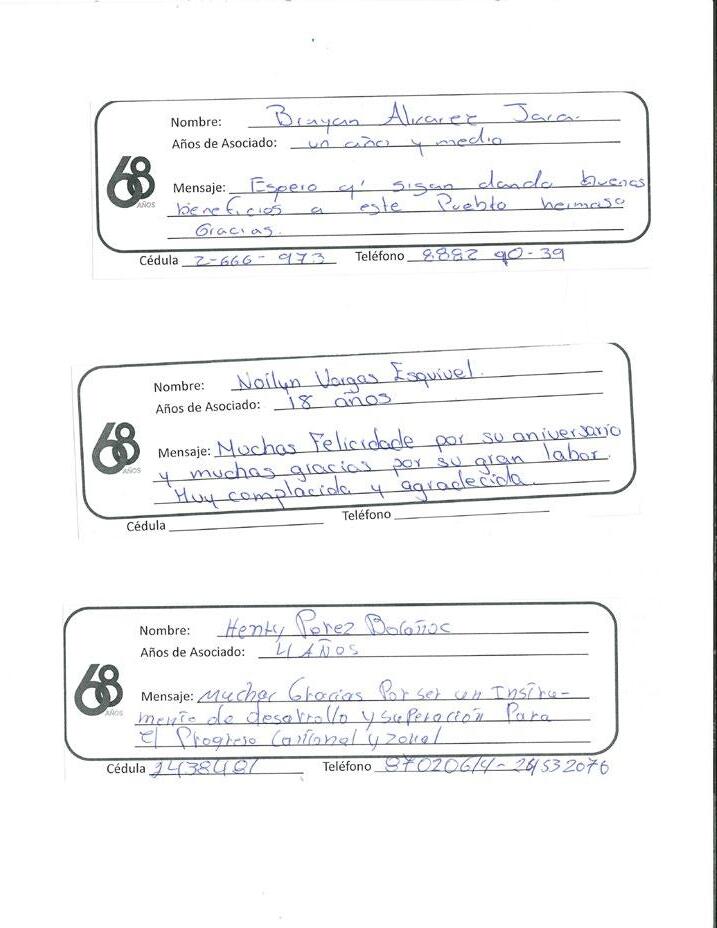 Nombre: Brayan Alvarez Jara.
Años de Asociado: un año y medio
68 AÑOS
Mensaje: Espero q' sigan dando buenos
beneficios a este Pueblo hermoso
Gracias.
Cédula 2-666-973 Teléfono 8882 90-39
Nombre: Noilyn Vargas Esquivel.
Años de Asociado: 18 años
68 AÑOS
Mensaje: Muchas Felicidade por su aniversario
y muchas gracias por su gran labor.
Muy complacida y agradecida.
Cédula Teléfono
Nombre: Henry Perez Bolaños
Años de Asociado: 4 AÑOS
68 AÑOS
Mensaje: Muchas Gracias Por ser un Instru-
mento de desarrollo y superación Para
el Progreso Cantonal y zonal
Cédula Teléfono